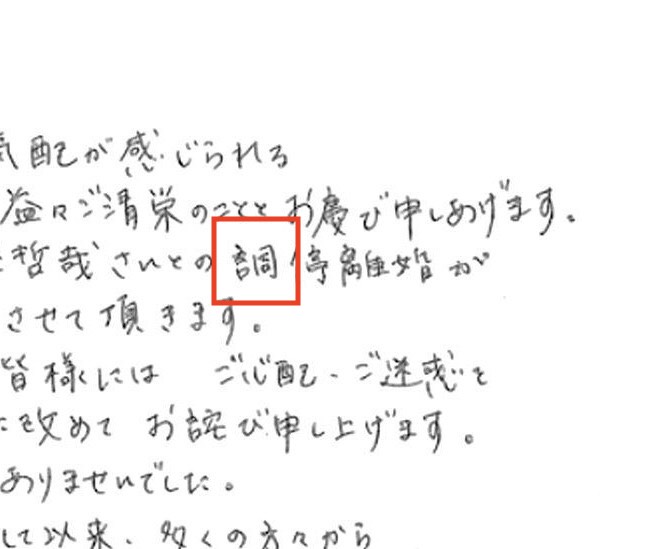 気配が感じられる
益々ご清栄のこととお慶び申しあげます。
哲哉さんとの調停離婚が
させて頂きます。
皆様には ご心配、ご迷惑を
に改めて お詫び申し上げます。
ありませんでした。
して以来、多くの方々から